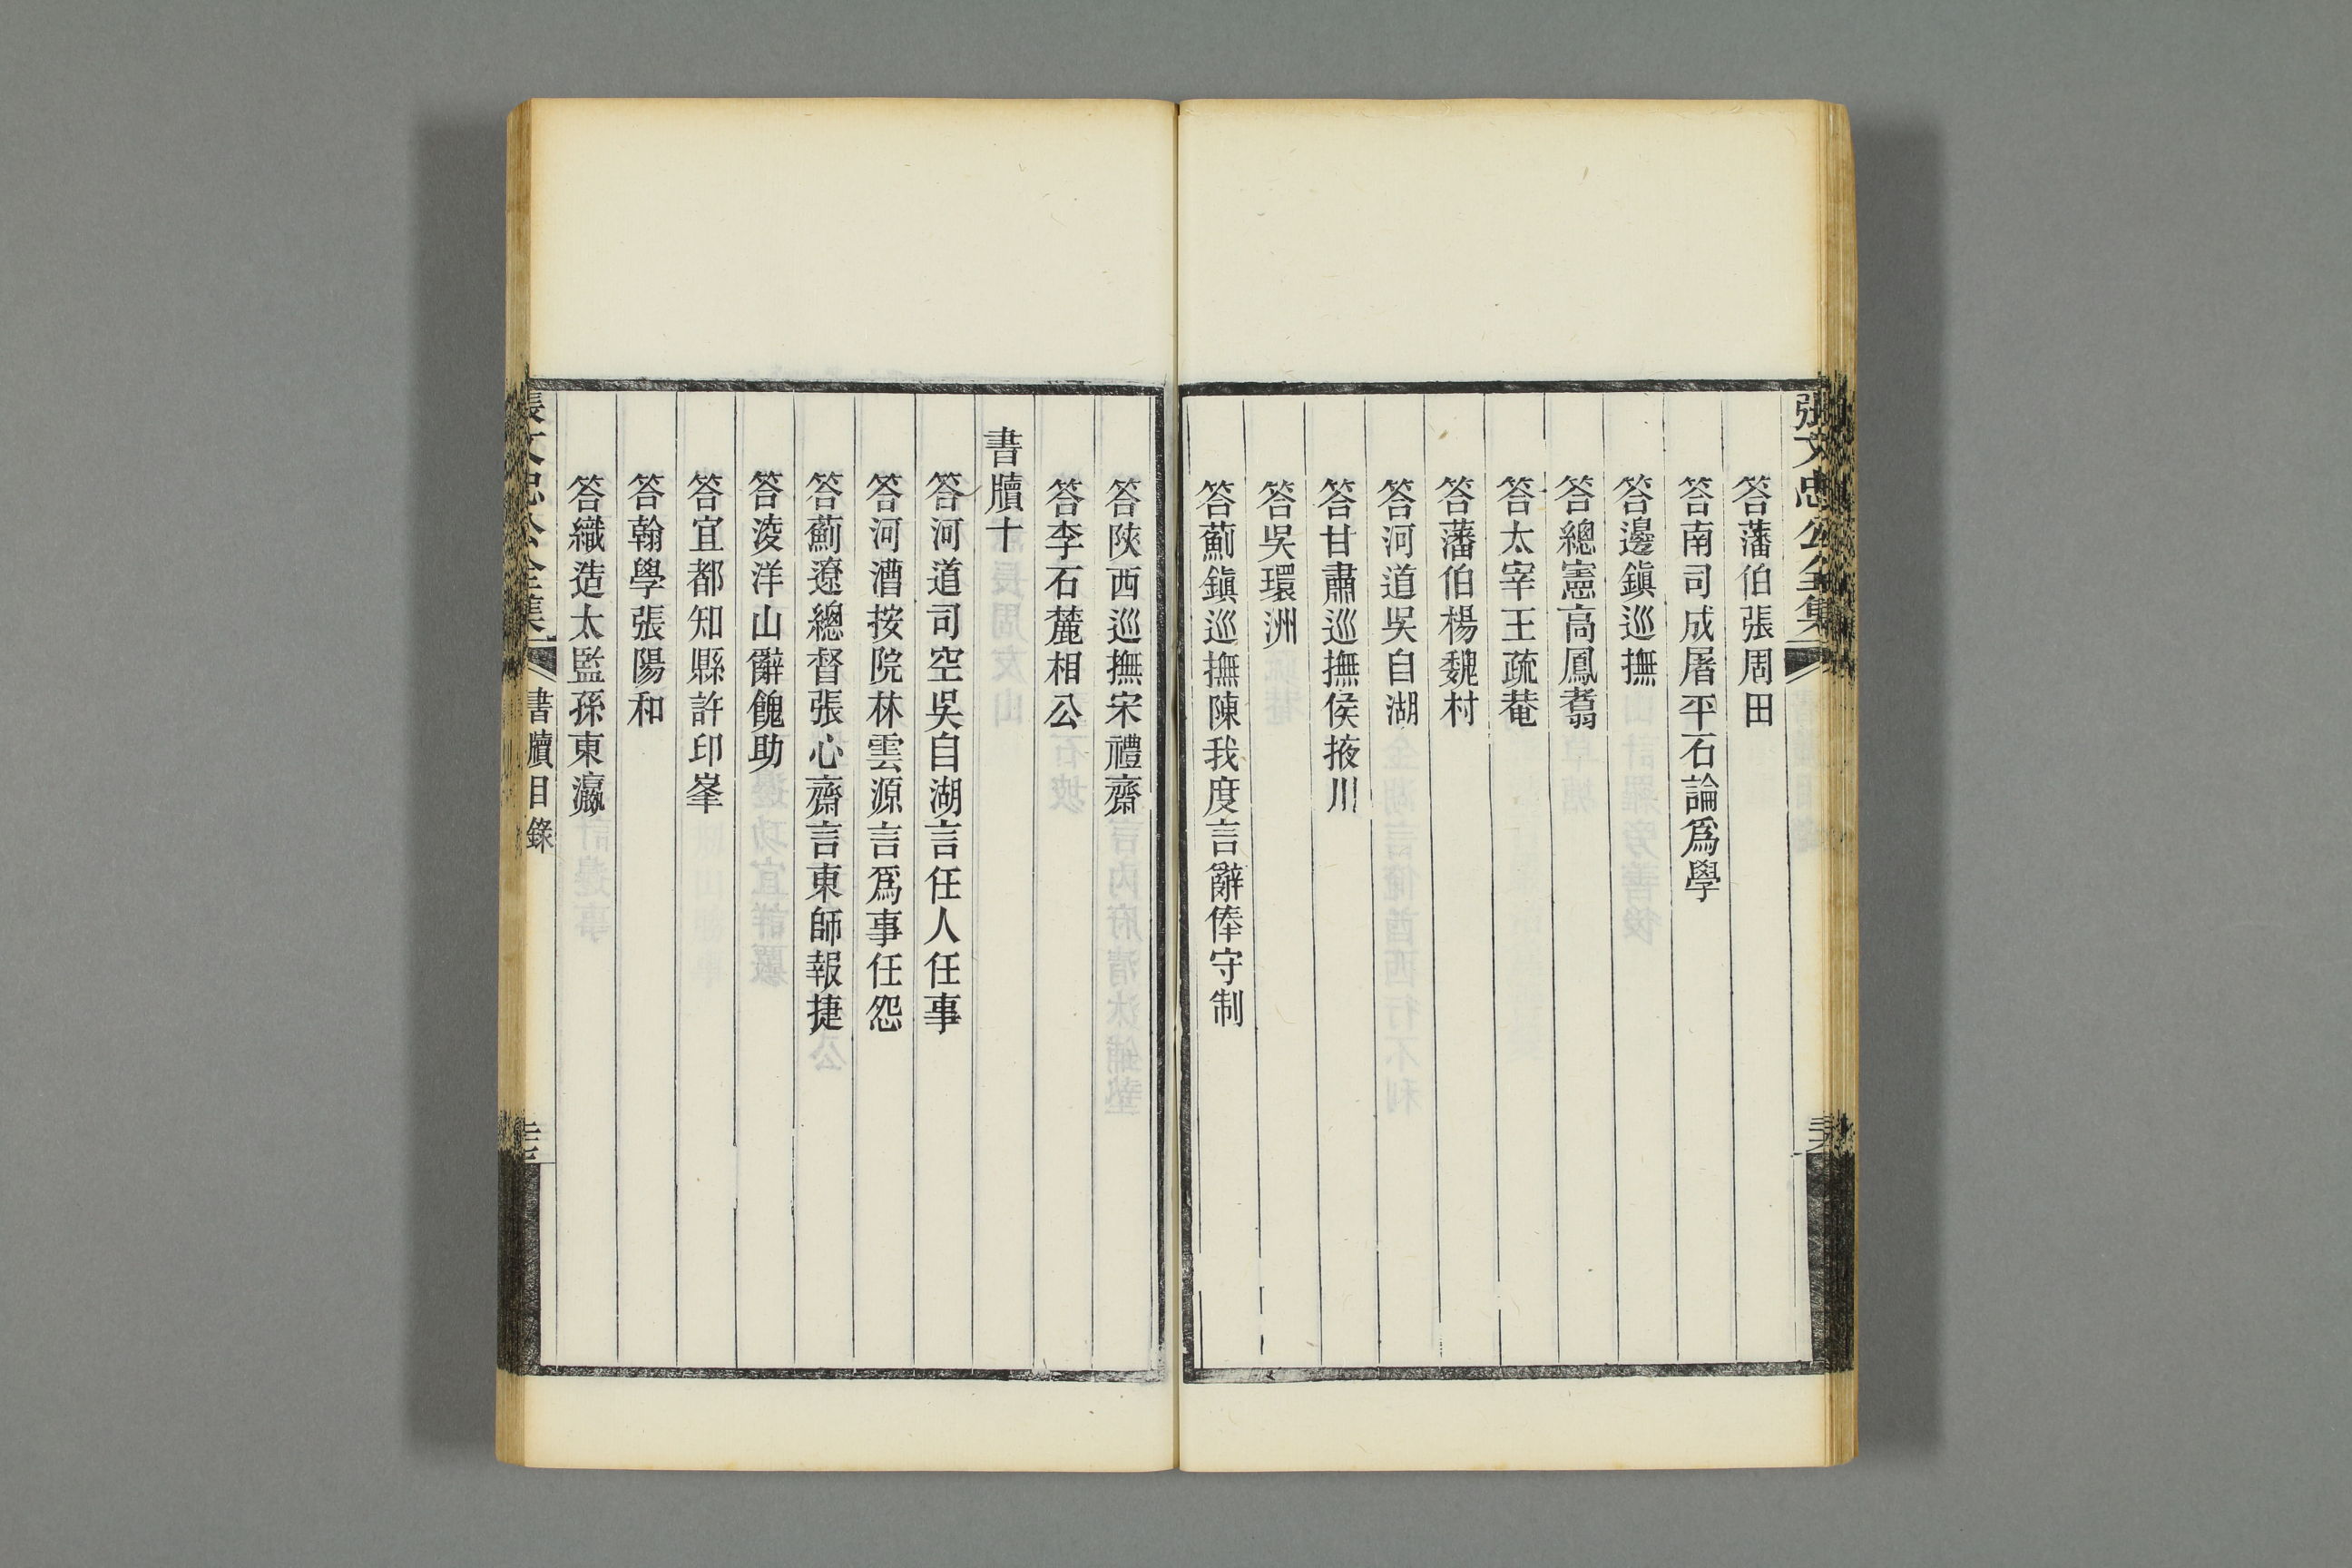 張文忠公全集
答藩伯張周田
答南司成屠平石論爲學
答邊鎭巡撫
答總憲高鳳翥
答太宰王疏菴
答藩伯楊魏村
答河道吳自湖
答甘肅巡撫侯掖川
答吳環洲
答薊鎭巡撫陳我度言辭俸守制
答陝西巡撫宋禮齋
答李石麓相公
書牘十
答河道司空吳自湖言任人任事
答河漕按院林雲源言爲事任怨
答薊遼總督張心齋言東師報捷
答淩洋山辭餽助
答宜都知縣許印峯
答翰學張陽和
答織造太監孫東瀛
張文忠公全集
書牘目錄